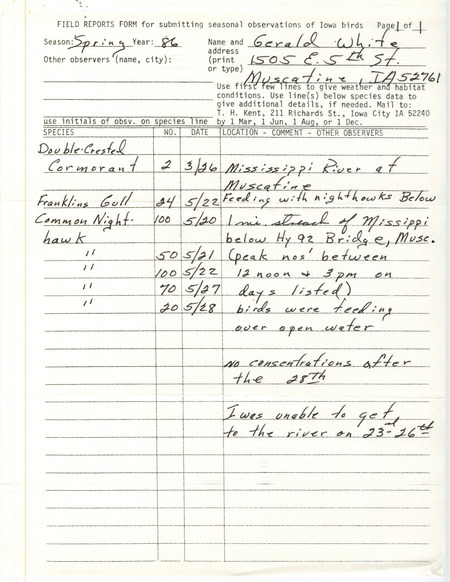 FIELD REPORTS FORM for submitting seasonal observations of Iowa birds Page 1 of 1
Season: Spring Year: 86 Name and Gerald White
Other observers (name, city): address 1505 E. 5th St.
(print
or type) Muscatine, IA 52761
Use first few lines to give weather and habitat
conditions. Use line(s) below species data to
give additional details, if needed. Mail to:
T. H. Kent, 211 Richards St., Iowa City IA 52240
use initials of obsv. on species line by 1 Mar, 1 Jun, 1 Aug, or 1 Dec.
SPECIES NO. DATE LOCATION - COMMENT - OTHER OBSERVERS
Double-Crested
Cormorant 2 3/26 Mississippi River at
Muscatine
Franklins Gull 24 5/22 Feeding with nighthawks Below
Common Night- 100 5/20 1 mi. streach of Missippi
hawk below Hy 92 Bridge, Musc.
" 50 5/21 (peak nos' between
" 100 5/22 12 noon + 3 pm on
" 70 5/27 days listed)
" 20 5/28 birds were feeding
over open water
No concentrations after
the 28th
I was unable to get
to the river on 23rd-26th